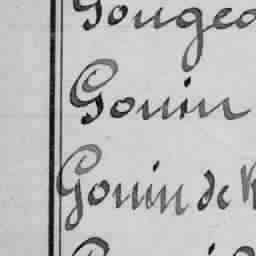 Gouge
Gouin
Gouin de